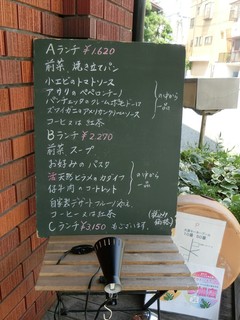 Aランチ ¥1.620
前菜 焼き立てパン
小エビのトマトソース
アサリのペペロンチーノ
パンチェッタのクレーム
ズワイガニのアメリカンクリームソース
の中から
一品
コーヒー又は紅茶
Bランチ ¥2.270
前菜 スープ
お好みのパスタ
天然ヒラメのカダイフ
仔牛肉のコートレット
の中から
一品
自家製デザート フルーツ添え
コーヒー又は紅茶
Cランチ ¥3150 もございます。